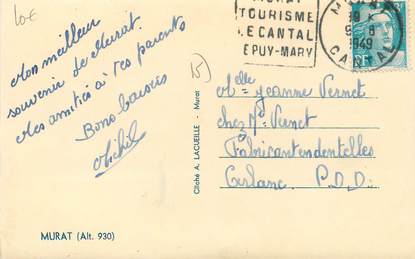 10€
Mon meilleur
souvenir de Murat.
Mes amitiés à tes parents
Bons baisers
Michel
MURAT (Alt. 930)
Cliché A. LACUEILLE - Murat
TOURISME
LE CANTAL
PUY-MARY
19 X
9 8
1949
CANTAL
Melle Jeanne Vernet
chez Mr Vernet
Fabricant en dentelles
Arlanc P.D.D.